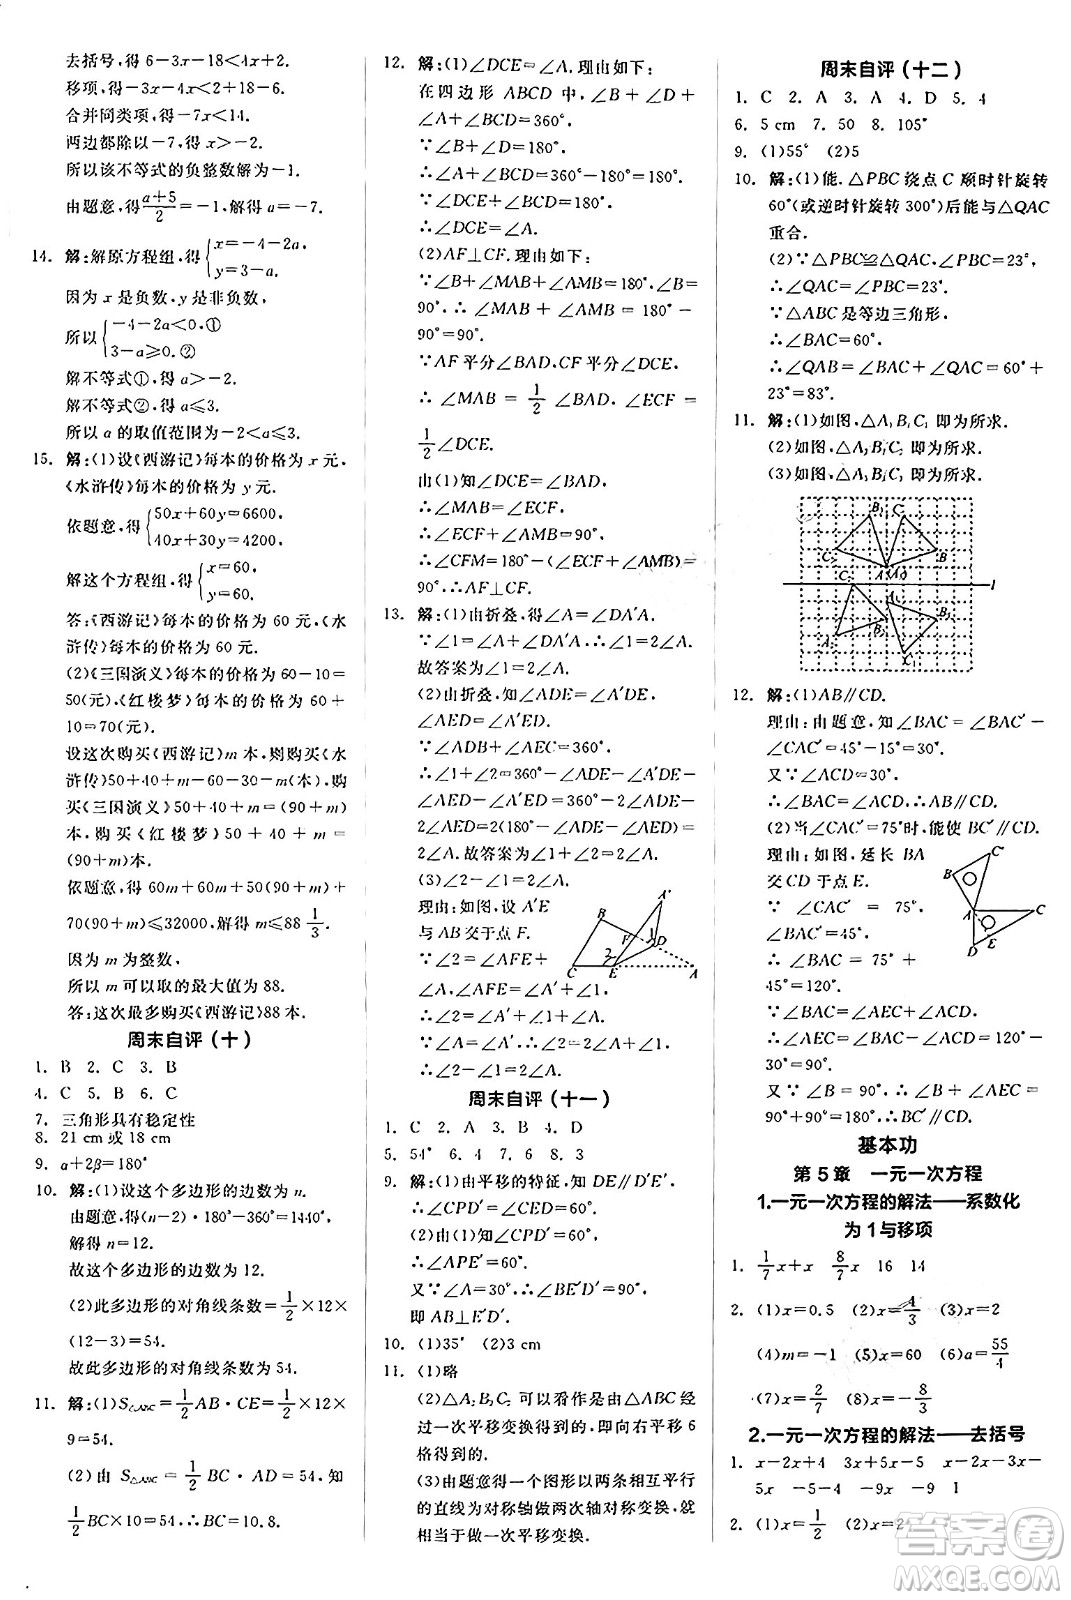 去括号,得6-3x-18<4x+2.
移项,得-3x-4x<2+18-6.
合并同类项,得-7x<14.
两边都除以-7,得x>-2.
所以该不等式的负整数解为-1.
由题意,得(a+5)/2=-1,解得a=-7.
14. 解:解原方程组,得{x=-4-2a,
y=3-a.
因为x是负数,y是非负数,
所以{-4-2a<0.①
3-a≥0.②
解不等式①,得a>-2.
解不等式②,得a≤3.
所以a的取值范围为-2<a≤3.
15. 解:(1)设《西游记》每本的价格为x元,
《水浒传》每本的价格为y元.
依题意,得{50x+60y=6600.
40x+30y=4200.
解这个方程组,得{x=60,
y=60.
答:《西游记》每本的价格为60元,《水
浒传》每本的价格为60元.
(2)《三国演义》每本的价格为60-10=
50(元),《红楼梦》每本的价格为60+
10=70(元).
设这次购买《西游记》m本,则购买《水
浒传》50+40+m-60-30-m(本),购
买《三国演义》50+40+m=(90+m)
本,购买《红楼梦》50+40+m=
(90+m)本.
依题意,得60m+60m+50(90+m)+
70(90+m)≤32000,解得m≤88 1/3.
因为m为整数,
所以m可以取的最大值为88.
答:这次最多购买《西游记》88本.
周末自评(十)
1. B 2. C 3. B
4. C 5. B 6. C
7. 三角形具有稳定性
8. 21 cm或18 cm
9. α+2β=180°
10. 解:(1)设这个多边形的边数为n.
由题意,得(n-2)·180°-360°=1440°.
解得n=12.
故这个多边形的边数为12.
(2)此多边形的对角线条数=1/2×12×
(12-3)=54.
故此多边形的对角线条数为54.
11. 解:(1)S△ABC=1/2AB·CE=1/2×12×
9=54.
(2)由S△ABC=1/2BC·AD=54,知
1/2BC×10=54,∴BC=10.8.
12. 解:(1)∠DCE=∠A.理由如下:
在四边形ABCD中,∠B+∠D+
∠A+∠BCD=360°.
∵∠B+∠D=180°,
∴∠A+∠BCD=360°-180°=180°.
∵∠DCE+∠BCD=180°,
∴∠DCE=∠A.
(2)AF⊥CF.理由如下:
∵∠B+∠MAB+∠AMB=180°,∠B=
90°,∴∠MAB+∠AMB=180°-
90°=90°.
∵AF平分∠BAD,CF平分∠DCE,
∴∠MAB=1/2∠BAD,∠ECF=
1/2∠DCE.
由(1)知∠DCE=∠BAD,
∴∠MAB=∠ECF.
∴∠ECF+∠AMB=90°.
∴∠CFM=180°-(∠ECF+∠AMB)=
90°.∴AF⊥CF.
13. 解:(1)由折叠,得∠A=∠DA′A.
∵∠1=∠A+∠DA′A,∴∠1=2∠A.
故答案为∠1=2∠A.
(2)由折叠,得∠ADE=∠A′DE,
∠AED=∠A′ED.
∵∠ADB+∠AEC=360°,
∴∠1+∠2=360°-∠ADE-∠A′DE-
∠A′ED-∠AED=360°-2∠ADE-
2∠AED=2(180°-∠ADE-∠AED)=
2∠A.故答案为∠1+∠2=2∠A.
(3)∠2-∠1=2∠A.
理由:如图,设A′E
与AB交于点F.
∵∠2=∠AFE+
∠A,∠AFE=∠A′+∠1,
∴∠2=∠A′+∠A+∠1.
∵∠A=∠A′,∴∠2=2∠A+∠1.
∴∠2-∠1=2∠A.
A′
B
F
1
D
2
C
E
A
周末自评(十一)
1. C 2. A 3. B 4. D
5. 54° 6. 4 7. 6 8. 3
9. 解:(1)由平移的特征,知DE∥D′E′.
∴∠CPD′=∠CED=60°.
(2)由(1)知∠CPD′=60°,
∴∠APE′=60°.
又∵∠A=30°,∴∠BE′D′=90°,
即AB⊥E′D′.
10. (1)35° (2)3 cm
11. (1)略
(2)△A₂B₂C₂可以看作是由△ABC经
过一次平移变换得到的,即向右平移6
格得到的.
(3)由题意可得一个图形以两条相互平行
的直线为对称轴做两次轴对称变换,就
相当于做一次平移变换.
周末自评(十二)
1. C 2. A 3. A 4. D 5. 4
6. 5 cm 7. 50 8. 105°
9. (1)55° (2)5
10. 解:(1)能.△PBC绕点C顺时针旋转
60°(或逆时针旋转300°)后能与△QAC
重合.
(2)∵△PBC≌△QAC,∠PBC=23°,
∴∠QAC=∠PBC=23°.
∵△ABC是等边三角形,
∴∠BAC=60°.
∴∠QAB=∠BAC+∠QAC=60°+
23°=83°.
11. 解:(1)如图,△A₁B₁C₁即为所求.
(2)如图,△A₂B₂C₂即为所求.
(3)如图,△A₃B₃C₃即为所求.
12. 解:(1)AB∥CD.
理由:由题意,知∠BAC=∠BAC′-
∠CAC′=45°-15°=30°.
又∵∠ACD=30°,
∴∠BAC=∠ACD.∴AB∥CD.
(2)当∠CAC′=75°时,能使BC′∥CD.
理由:如图,延长BA
交CD于点E.
∵∠CAC′=75°,
∴∠BAC=75°+
45°=120°.
∵∠BAC=∠AEC+∠ACD,
∴∠AEC=∠BAC-∠ACD=120°-
30°=90°.
又∵∠B=90°,∴∠B+∠AEC=
90°+90°=180°,∴BC′∥CD.
C′
B
A
C
D
E
基本功
第5章 一元一次方程
1.一元一次方程的解法——系数化
为1与移项
1. 1/7x+x 8/7x 16 14
2. (1)x=0.5 (2)x=4/3 (3)x=2
(4)m=-1 (5)x=60 (6)a=55/4
(7)x=5/7 (8)x=-8/9
2.一元一次方程的解法——去括号
1. x-2x+4 3x+5x-5 x-2x-3x-
5x -5-4-9 1
2. (1)x=1/2 (2)x=2
答案卷
MXQE.COM